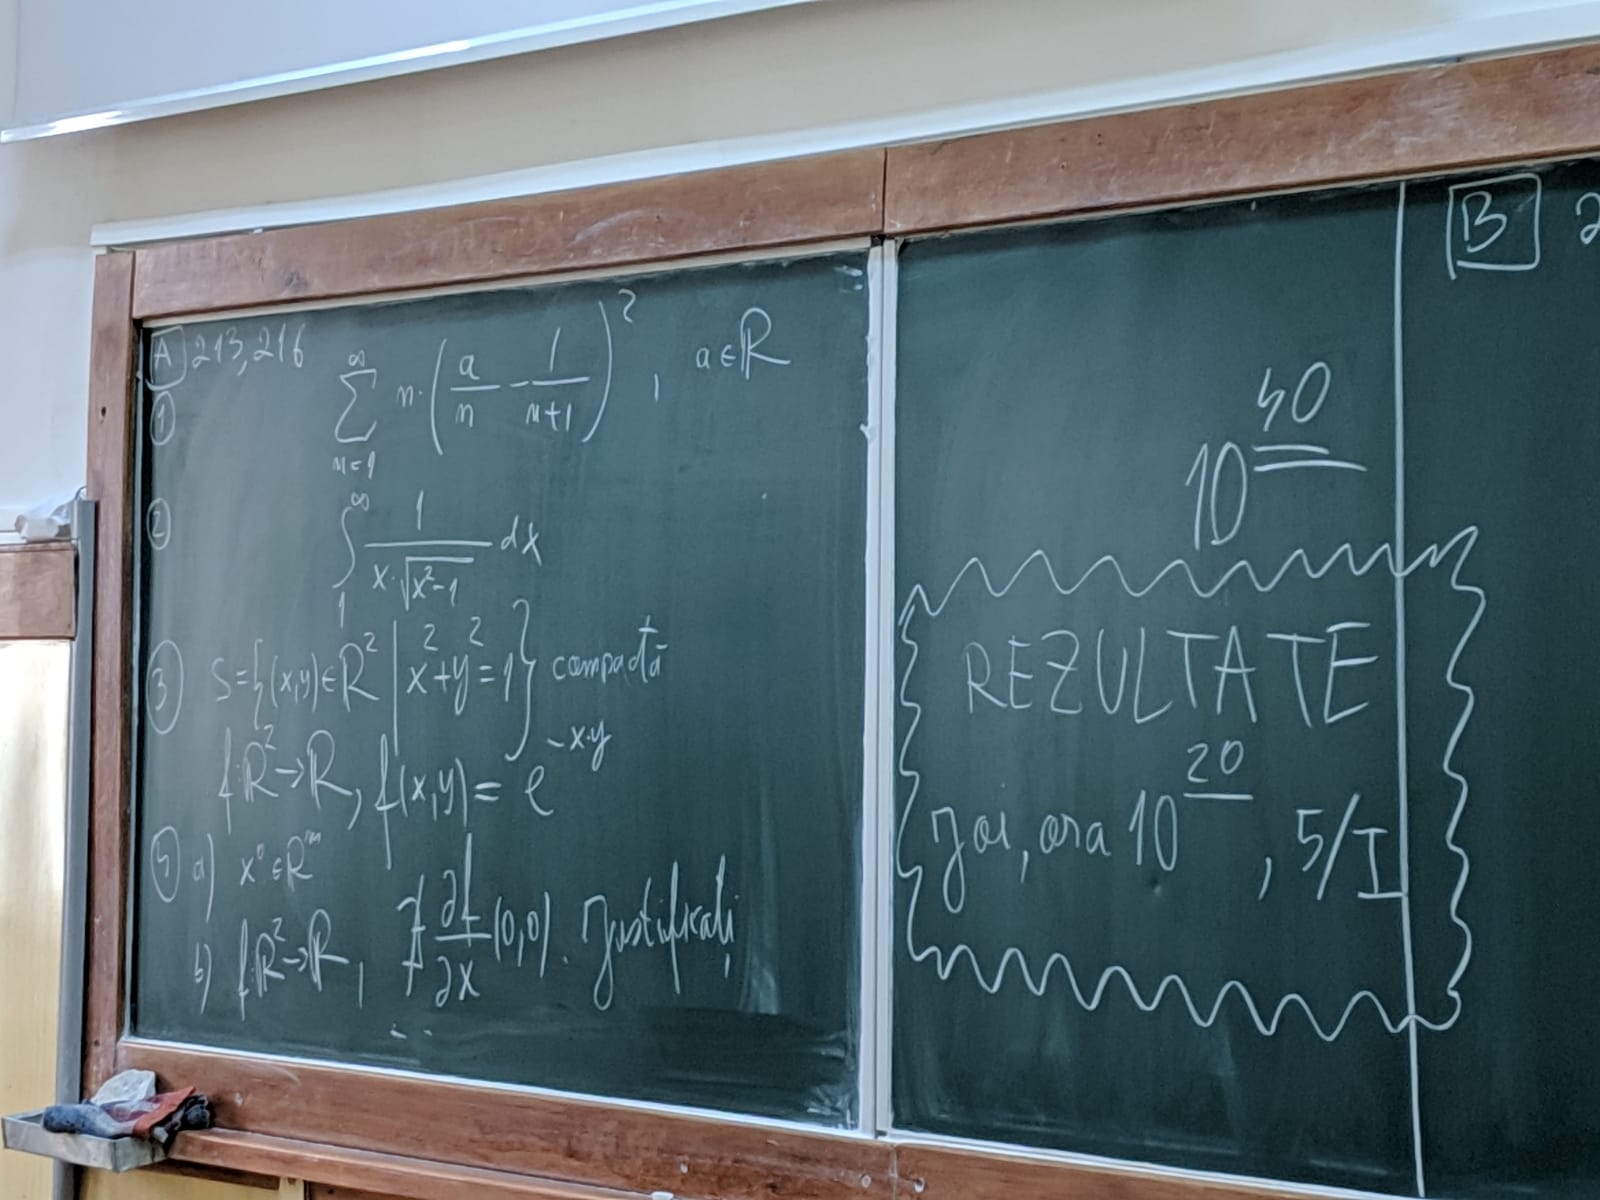 A 213, 216
① ∑_{n=1}^{∞} n·(a/n - 1/(n+1))², a∈ℝ
② ∫_1^∞ 1/(x·√(x²-1)) dx
③ S={(x,y)∈ℝ² | x²+y²=1} compactă
f:ℝ²→ℝ, f(x,y) = e^{-x·y}
a) x⁰∈ℝᵐ
b) f:ℝ²→ℝ, ∄ ∂f/∂x (0,0). Justificați
...
10⁴⁰
REZULTATE
Joi, ora 10²⁰, 5/I
B 2